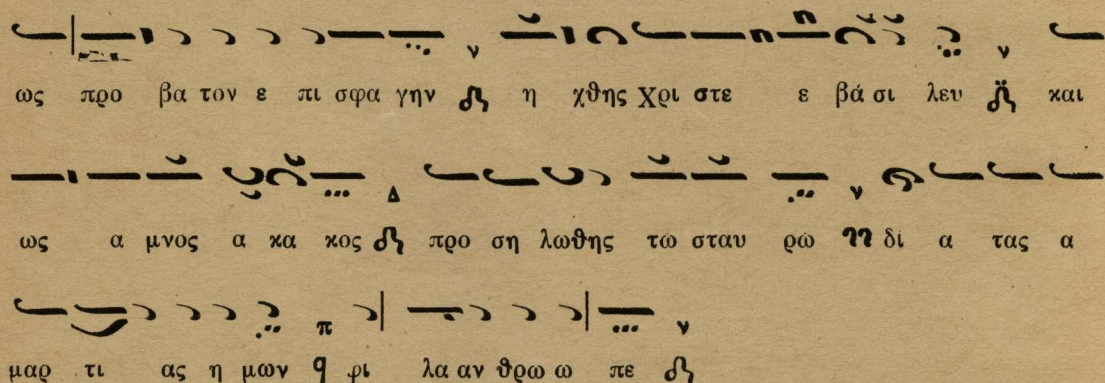 ως προ βα τον ε πι σφα γην η χθης Χρι στε ε βά σι λευ και
ως α μνος α κα κος προ ση λωθης τω σταυ ρω δι α τας α
μαρ τι ας η μων φι λα αν θρω ω πε